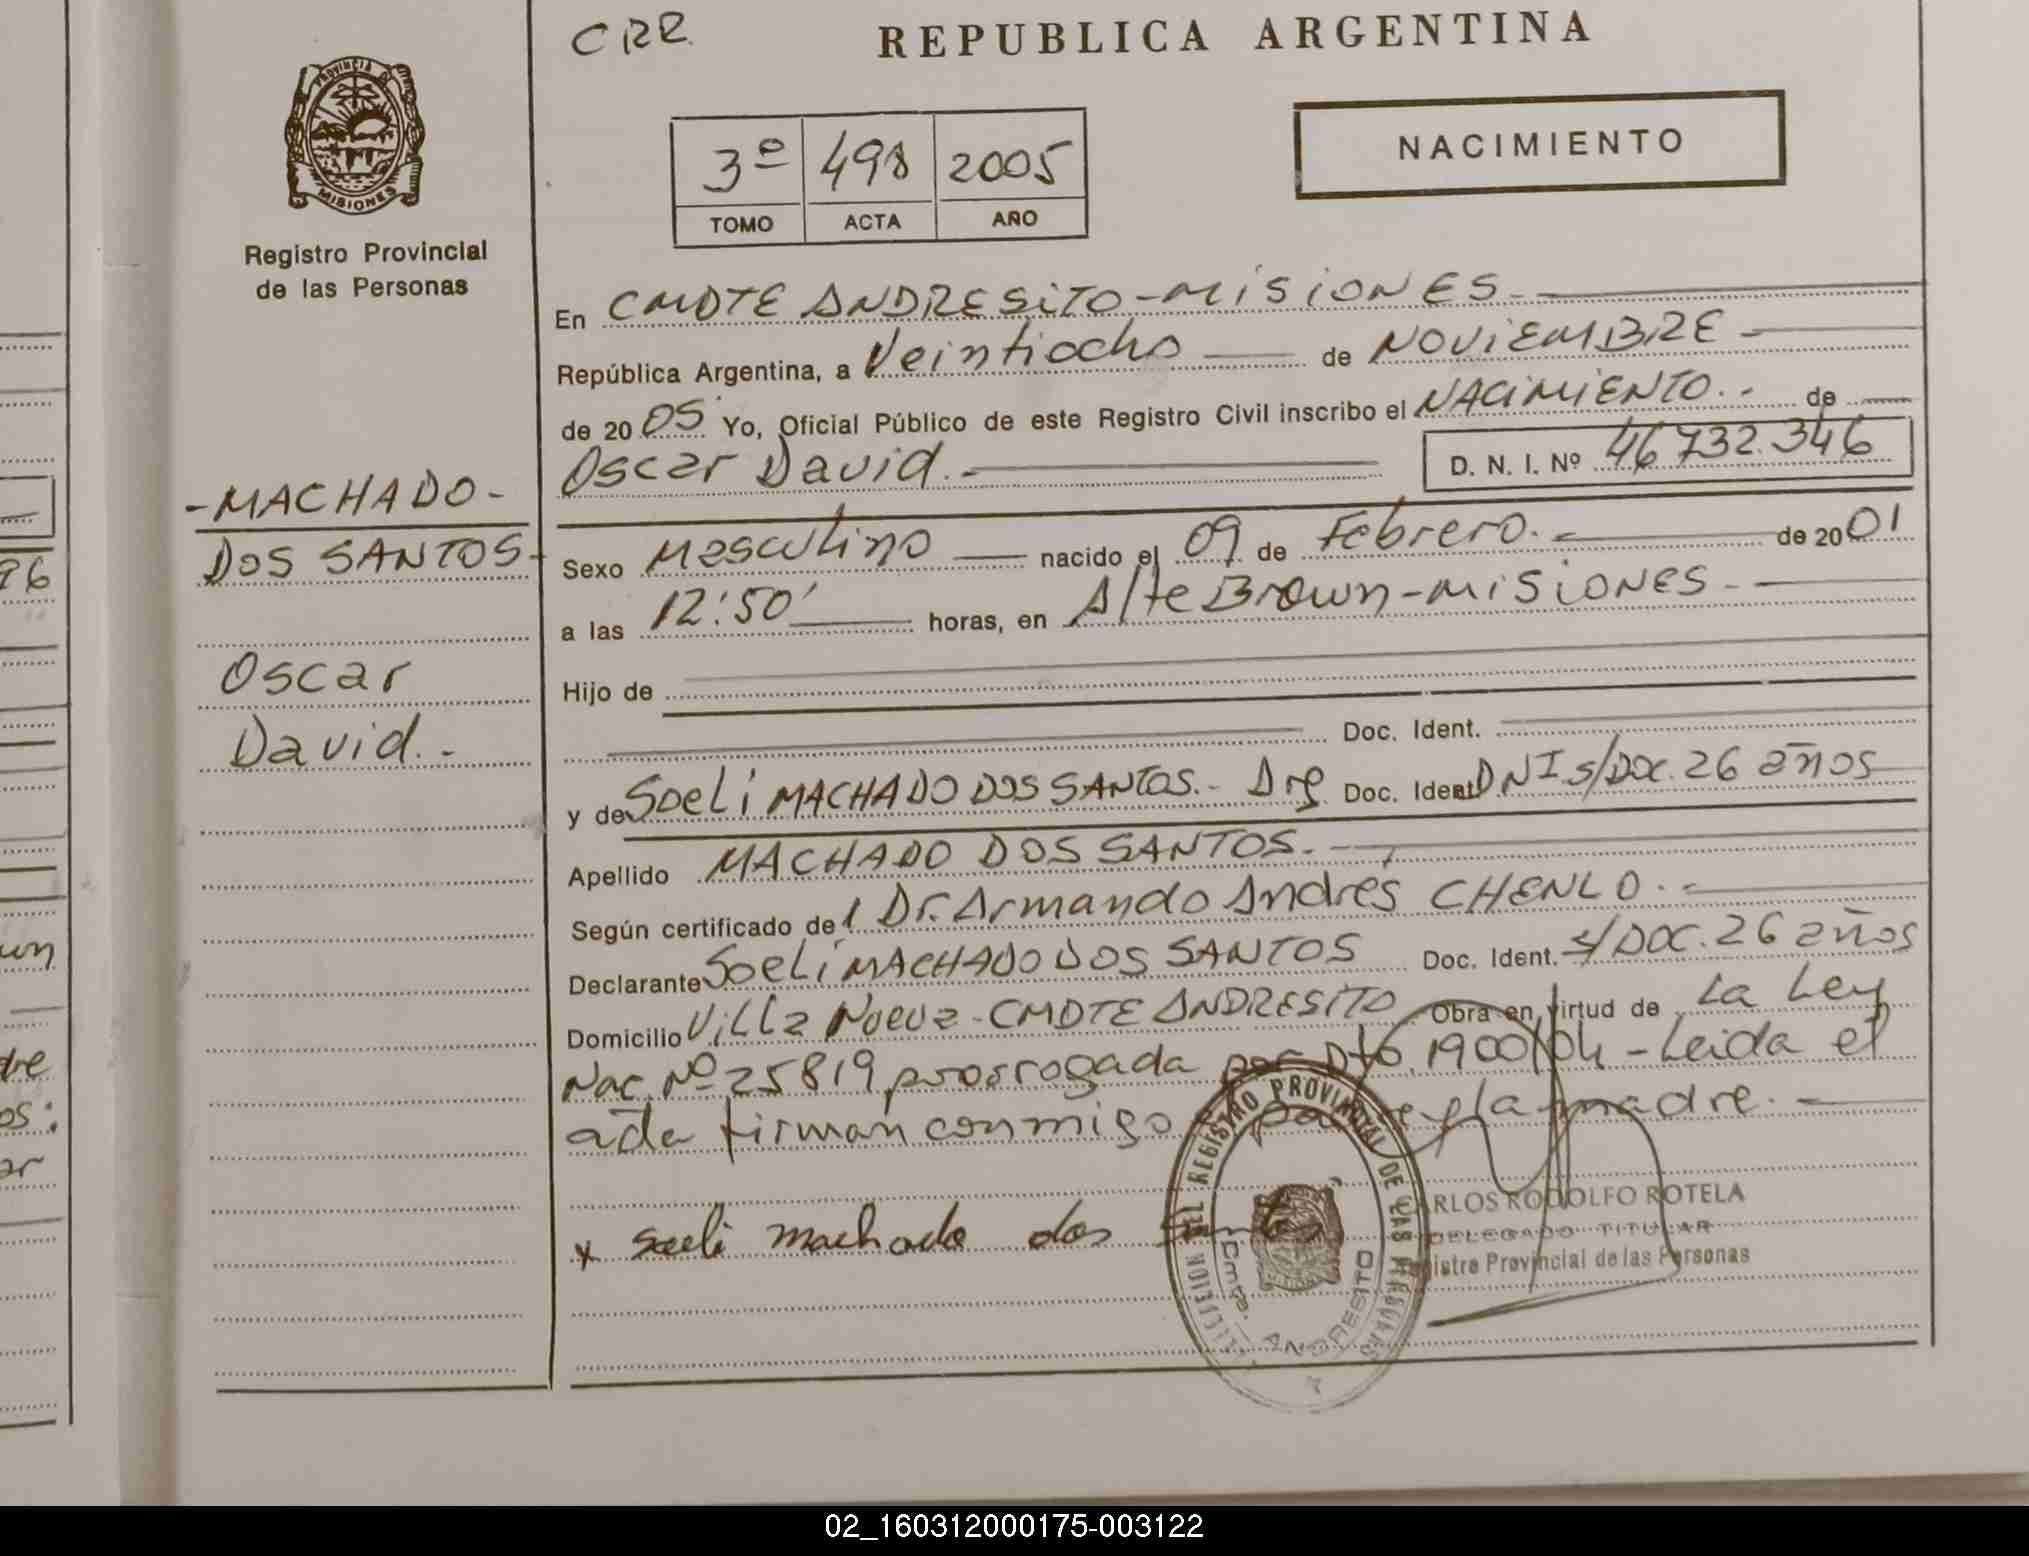 CRR
REPUBLICA ARGENTINA
PROVINCIA DE
MISIONES
Registro Provincial
de las Personas
3º 498 2005
TOMO ACTA AÑO
NACIMIENTO
En CMDTE ANDRESITO-MISIONES.
República Argentina, a Veintiocho de NOVIEMBRE
de 2005 Yo, Oficial Público de este Registro Civil inscribo el NACIMIENTO.- de
Oscar David.- D. N. I. Nº 46732.346
-MACHADO-
DOS SANTOS-
Oscar
David.-
Sexo Masculino nacido el 09 de Febrero.- de 2001
a las 12:50' horas, en Alte Brown-MISIONES-
Hijo de
Doc. Ident.
y de Soeli MACHADO DOS SANTOS.- Arg Doc. Ident DNI s/Doc. 26 años
Apellido MACHADO DOS SANTOS.-
Según certificado del Dr. Armando Andrés CHENLO.-
Declarante Soeli MACHADO DOS SANTOS Doc. Ident. s/Doc. 26 años
Domicilio Villa Nueva-CMDTE ANDRESITO Obra en virtud de La Ley
Nac. Nº 25819 prorrogada por Dto. 1900/04 - Leida el
acta firman conmigo padre y la madre.-
x soeli machado dos santos
REGISTRO PROVINCIAL DE LAS PERSONAS
Cmte. ANDRESITO
CARLOS RODOLFO ROTELA
DELEGADO TITULAR
Registro Provincial de las Personas
96
wn
dre
os:
ar
02_160312000175-003122